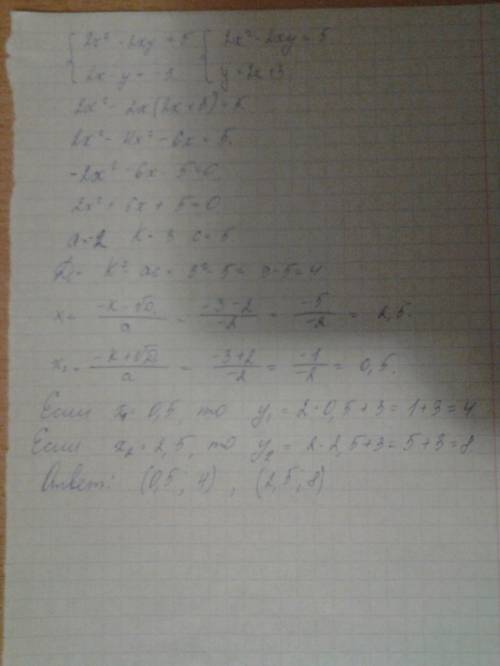 { 2x² - 2xy = 5 { 2x² - 2xy = 5
{ 2x - y = -3 { y = 2x + 3
2x² - 2x(2x + 3) = 5
2x² - 4x² - 6x = 5.
-2x² - 6x - 5 = 0
2x² + 6x + 5 = 0
a = 2 k = 3 c = 5
= k² - ac = 3² - 5 = 9 - 5 = 4
x = (-k - √D)/a = (-3 - 2)/-2 = -5/-2 = 2,5.
x₂ = (-k + √D)/a = (-3 + 2)/-2 = -1/-2 = 0,5.
Если x₁ = 0,5, то y₁ = 2 · 0,5 + 3 = 1 + 3 = 4
Если x₂ = 2,5, то y₂ = 2 · 2,5 + 3 = 5 + 3 = 8.
Ответ: (0,5; 4), (2,5; 8)